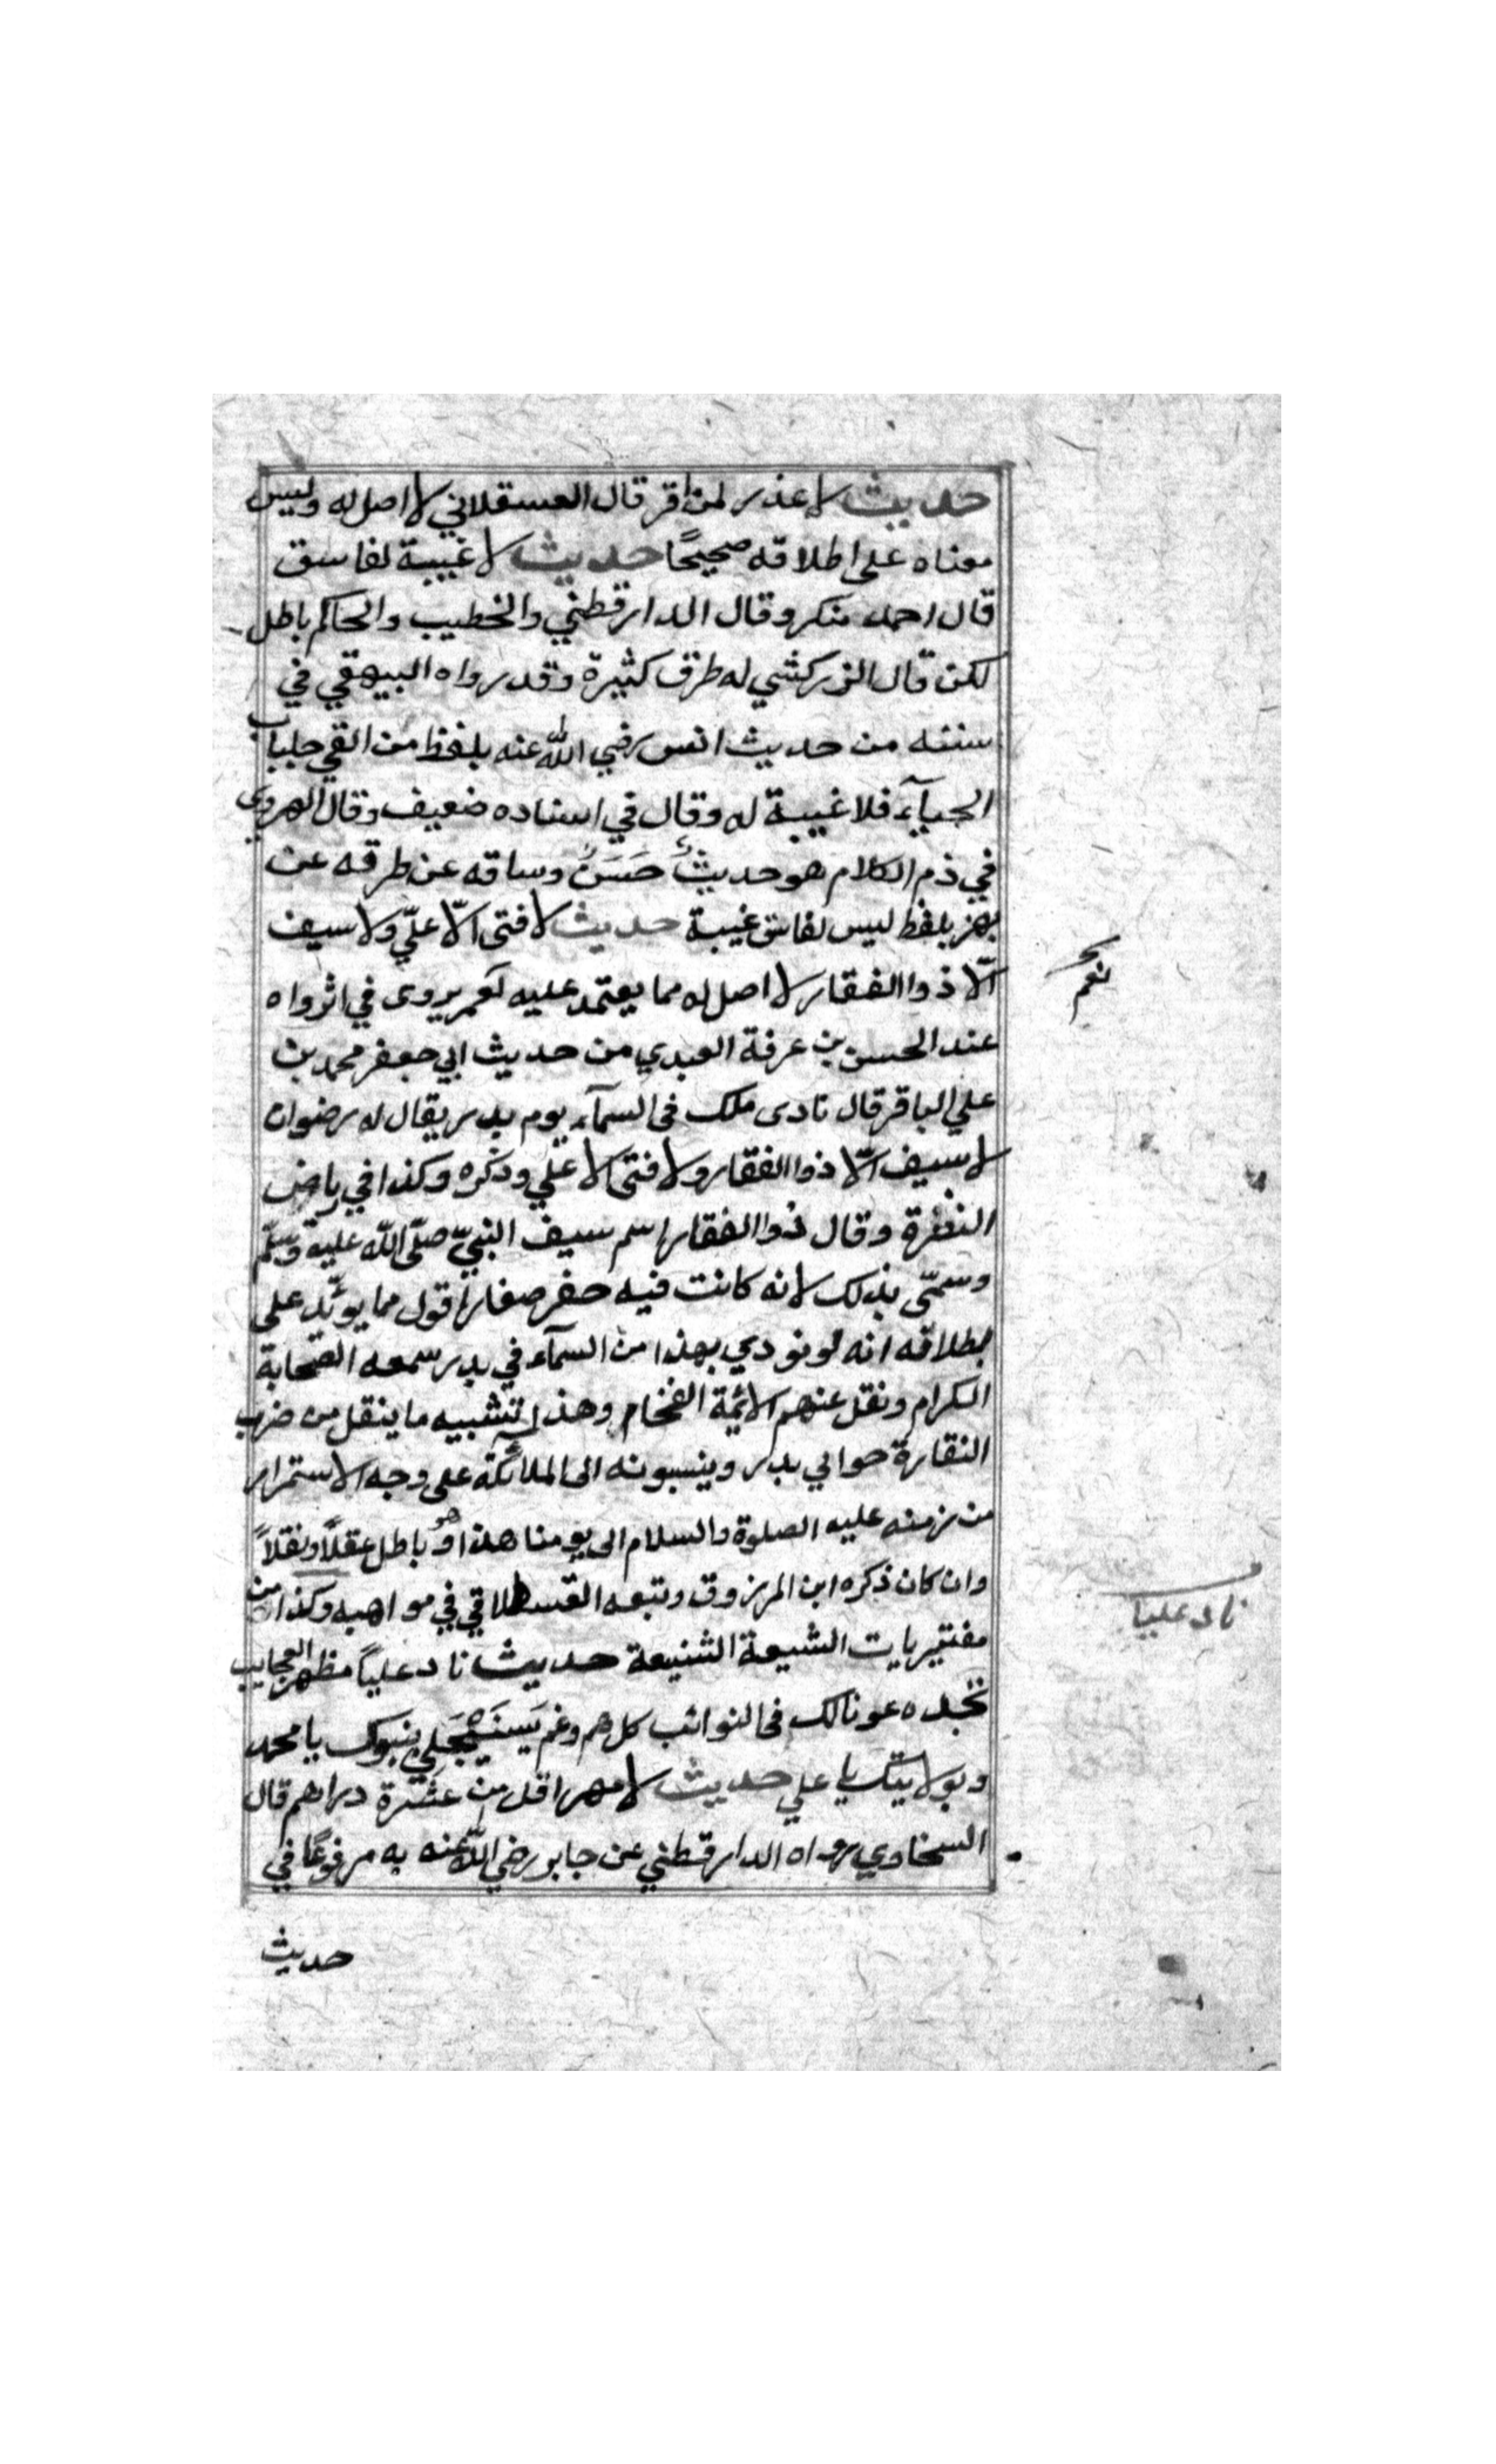 حديث لا عذر لمن اقر قال العسقلاني لا اصل له وليس
معناه على اطلاقه صحيحًا حديث لا غيبة لفاسق
قال احمد منكر وقال الدارقطني والخطيب والحاكم باطل
لكن قال الزركشي له طرق كثيرة وقد رواه البيهقي في
سننه من حديث انس رضي الله عنه بلفظ من القي جلباب
الحيآء فلا غيبة له وقال في اسناده ضعيف وقال الهروي
في ذم الكلام هو حديثٌ حَسَنٌ وساقه عن طرقه عن
بهز بلفظ ليس لفاسق غيبة حديث لا فتى الّا عليّ ولا سيف
الّا ذوا الفقار لا اصل له مما يعتمد عليه نعم يروى في اثر واه
عند الحسن بن عرفة العبدي من حديث ابي جعفر محمد بن
علي الباقر قال نادى ملك في السمآء يوم بدر يقال له رضوان
لا سيف الّا ذوا الفقار ولا فتى الا علي وذكره وكذا في رياض
النضرة وقال ذوا الفقار اسم سيف النبيّ صلّى الله عليه وسلّم
وسمّى بذلك لانه كانت فيه حفر صغار اقول مما يويّد على
بطلاقه انه لو نودي بهذا من السمآء في بدر سمعه الصّحابة
الكرام ونقل عنهم الائمة الفخام وهذا تشبيه ما ينقل من ضرب
النقارة حوالي بدر وينسبونه الى الملائكة على وجه الاستمرار
من زمنه عليه الصلوة والسلام الى يومنا هذا وهو باطل عقلاً ونقلاً
وان كان ذكره ابن المرزوق وتبعه القسطلاقي في مواهبه وكذا من
مفتيريات الشيعة الشنيعة حديث ناد علياً مظهر العجايب
تجده عونا لك في النوائب كل هم وغم يَسنَيَجَلِي بنبوك يا محمد
وبولايتك يا علي حديث لا مهر اقل من عشرة دراهم قال
السخاوي رواه الدارقطني عن جابر رضي الله عنه به مرفوعًا في
حديث
نعم
ناد عليا